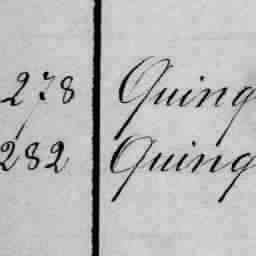 278 Quing
282 Quing